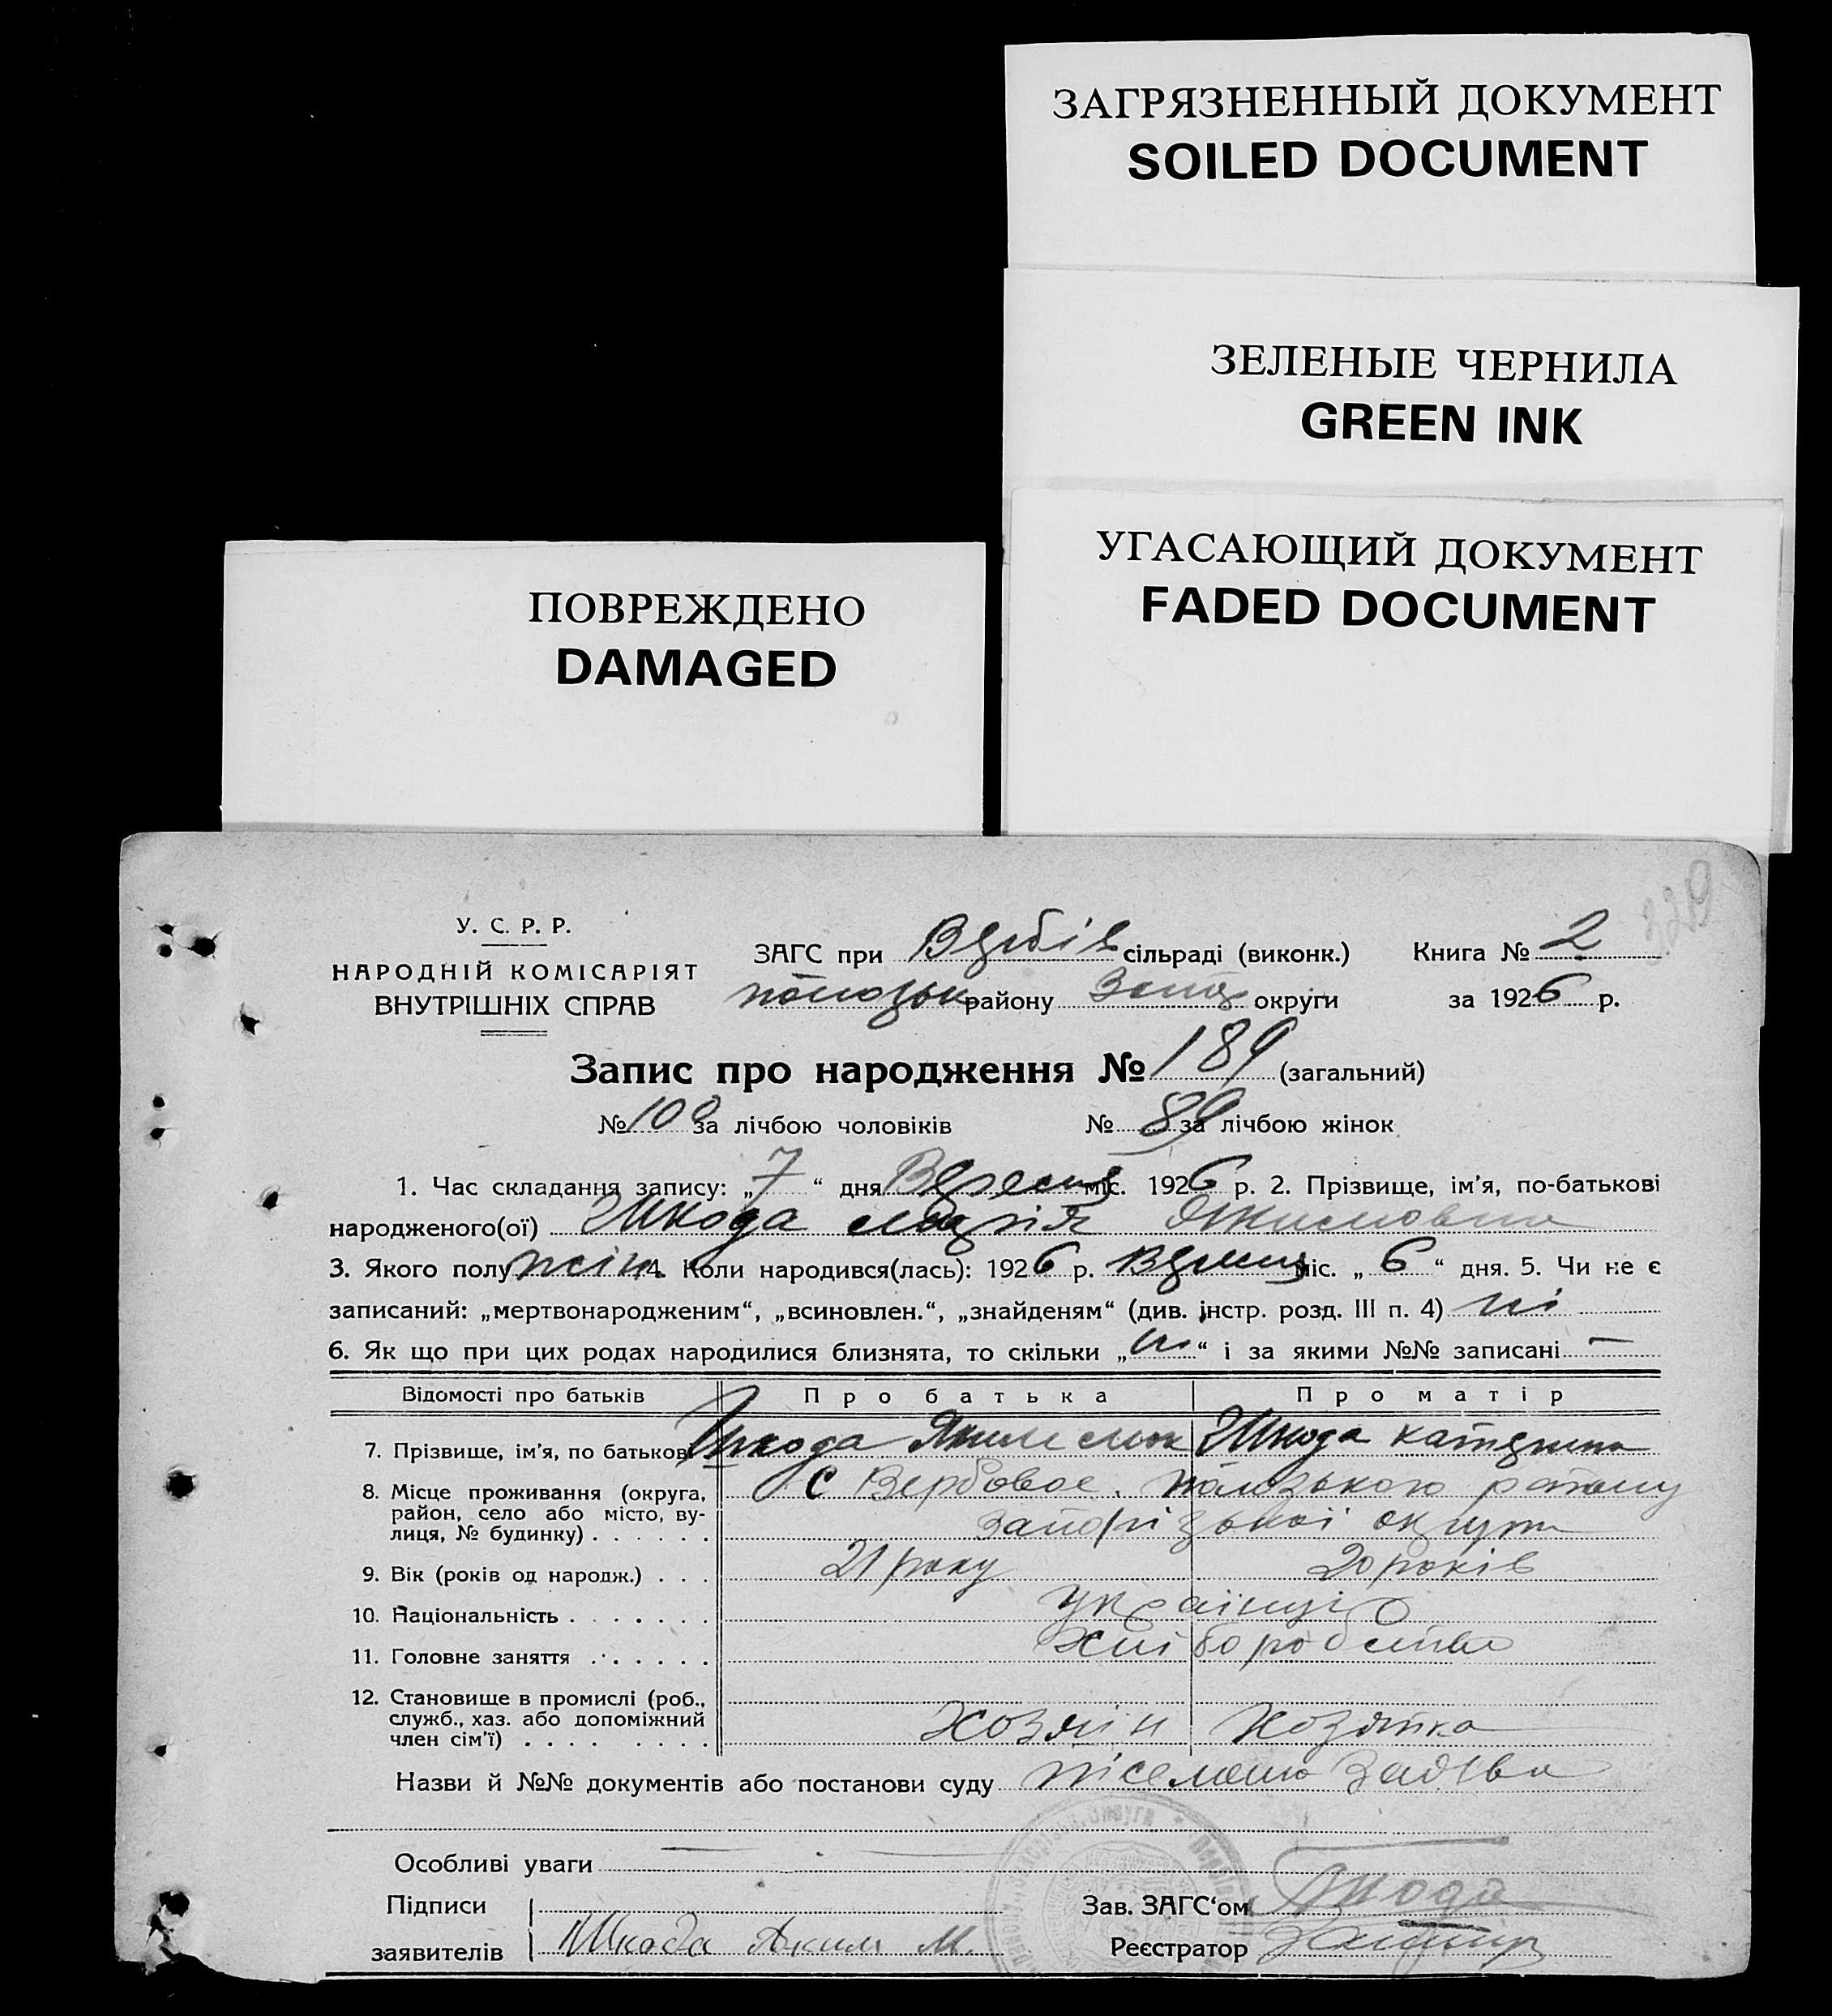 ЗАГРЯЗНЕННЫЙ ДОКУМЕНТ
SOILED DOCUMENT
ЗЕЛЕНЫЕ ЧЕРНИЛА
GREEN INK
УГАСАЮЩИЙ ДОКУМЕНТ
FADED DOCUMENT
ПОВРЕЖДЕНО
DAMAGED
329
У. С. Р. Р.
НАРОДНІЙ КОМІСАРІЯТ
ВНУТРІШНІХ СПРАВ
ЗАГС при Вербів сільраді (виконк.) Книга № 2
району округи за 1926 р.
Запис про народження № 189 (загальний)
№ 100 за лічбою чоловіків № 89 за лічбою жінок
1. Час складання запису: „7“ дня Вересня міс. 1926 р. 2. Прізвище, ім'я, по-батькові
народженого(ої) Шкода Марія Якимовна
3. Якого полу жін. 4. Коли народився(лась): 1926 р. міс. „6“ дня. 5. Чи не є
записаний: „мертвонародженим“, „всиновлен.“, „знайденям“ (див. інстр. розд. III п. 4) ні
6. Як що при цих родах народилися близнята, то скільки „ні“ і за якими №№ записані —
Відомості про батьків Про батька Про матір
7. Прізвище, ім'я, по батькові Шкода Яким Шкода Катерина
8. Місце проживання (округа,
район, село або місто, ву-
лиця, № будинку) . . . . . .
с Вербовое. району
Запорізької округи
9. Вік (років од народж.) . . . 21 року 20 років
10. Національність . . . . . . . українці
11. Головне заняття . . . . . . . хліборобство
12. Становище в промислі (роб.,
служб., хаз. або допоміжний
член сім'ї) . . . . . . . . хозяїн хозяйка
Назви й №№ документів або постанови суду заява
Особливі уваги —
Підписи
заявителів Шкода Аким М.
Зав. ЗАГС'ом Шкода
Реєстратор